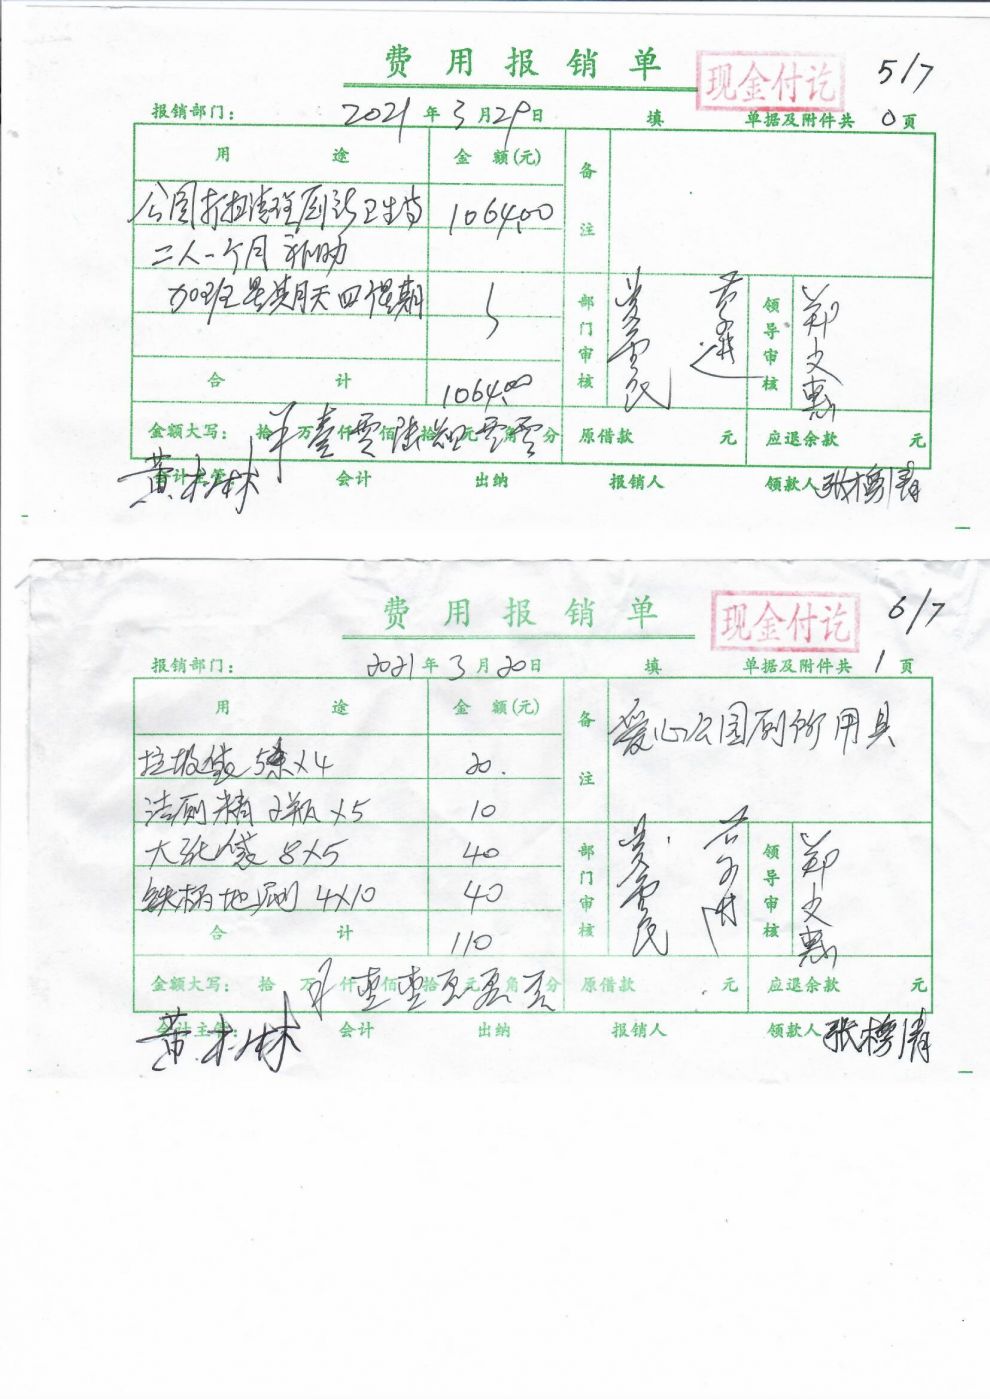 费用报销单
现金付讫
5/7
报销部门: 2021年3月29日 填 单据及附件共 0 页
用途 金额(元) 备注
公园打扫清理厕所卫生 1064.00
二人一个月补助
加班星期天四个星期
部门审核 领导审核 郑文惠
合计 1064.00
金额大写: 拾 万 壹仟零佰陆拾肆元零角零分 原借款 元 应退余款 元
会计主管 黄木林 会计 出纳 报销人 领款人 张穆清
费用报销单
现金付讫
6/7
报销部门: 2021年3月20日 填 单据及附件共 1 页
用途 金额(元) 备注 爱心公园厕所用具
垃圾袋 5×4 20.
洁厕精 2瓶×5 10
大张袋 8×5 40
铁柄地刷 4×10 40
部门审核 领导审核 郑文惠
合计 110
金额大写: 拾 万 仟壹佰壹拾零元零角零分 原借款 元 应退余款 元
会计主管: 黄木林 会计 出纳 报销人 领款人 张穆清